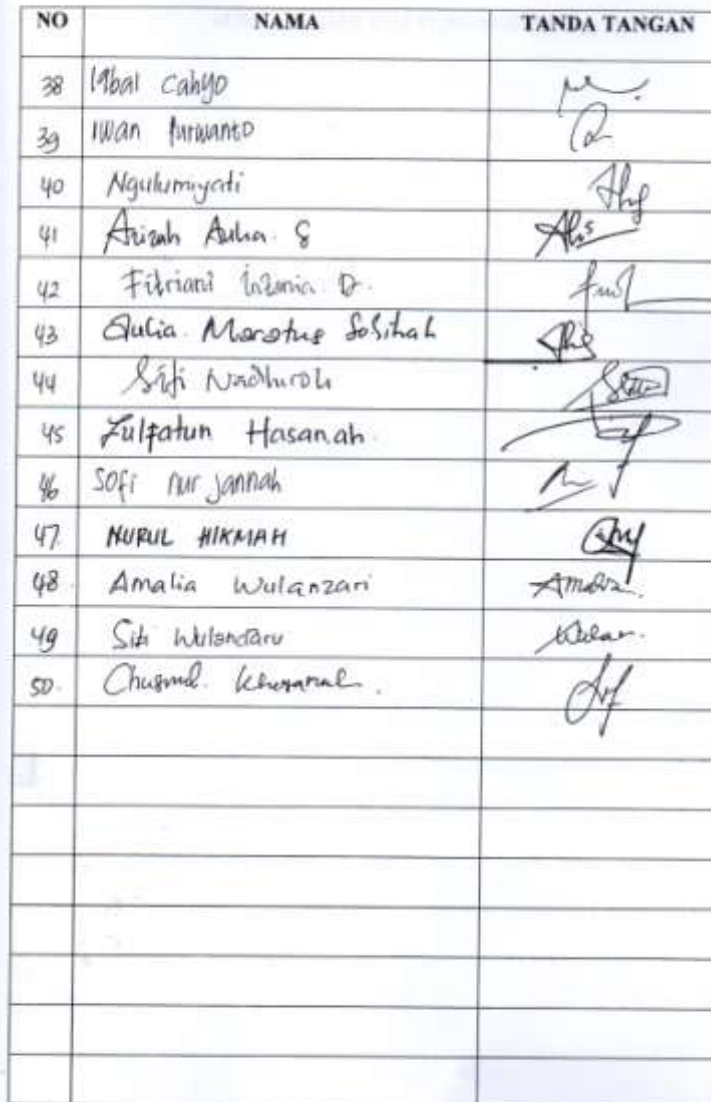 NO NAMA TANDA TANGAN
38 Iqbal Cahyo
39 Iwan Purwanto
40 Ngulumiyati
41 Azizah Aulia. S
42 Fitriani Intania D.
43 Aulia Marotus Solihah
44 Siti Nadhiroh
45 Zulfatun Hasanah
46 Sofi nur jannah
47. NURUL HIKMAH
48. Amalia Wulanzari Amalia.
49 Siti Wulandaru Wulan.
50. Chusnul. Khusanah.